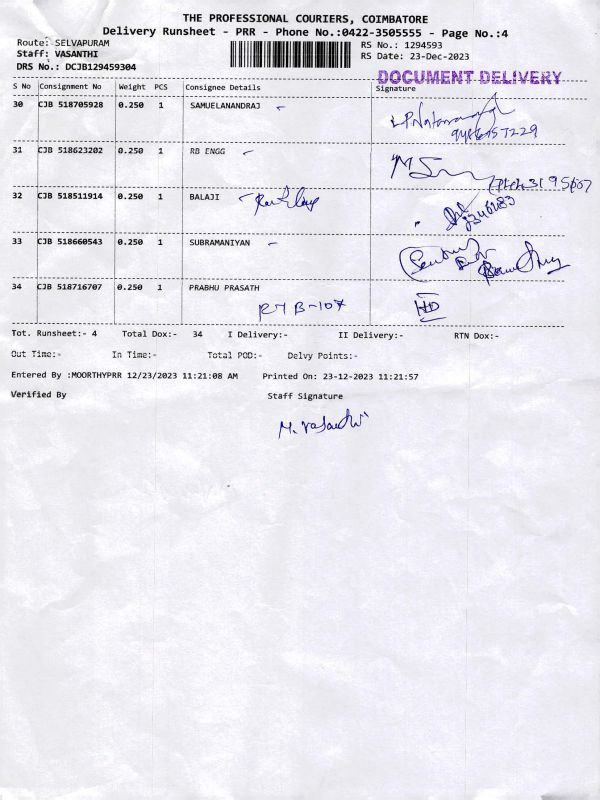 THE PROFESSIONAL COURIERS, COIMBATORE
Delivery Runsheet - PRR - Phone No.:0422-3505555 - Page No.:4
Route: SELVAPURAM
RS No.: 1294593
Staff: VASANTHI
RS Date: 23-Dec-2023
DRS No.: DCJB129459304
DOCUMENT DELIVERY
S No Consignment No Weight PCS Consignee Details Signature
30 CJB 518705928 0.250 1 SAMUELANANDRAJ -
31 CJB 518623202 0.250 1 RB ENGG -
32 CJB 518511914 0.250 1 BALAJI -
33 CJB 518660543 0.250 1 SUBRAMANIYAN -
34 CJB 518716707 0.250 1 PRABHU PRASATH
HD
Tot. Runsheet:- 4 Total Dox:- 34 I Delivery:- II Delivery:- RTN Dox:-
Out Time:- In Time:- Total POD:- Delvy Points:-
Entered By :MOORTHYPRR 12/23/2023 11:21:08 AM Printed On: 23-12-2023 11:21:57
Verified By Staff Signature
M. Vasanthi